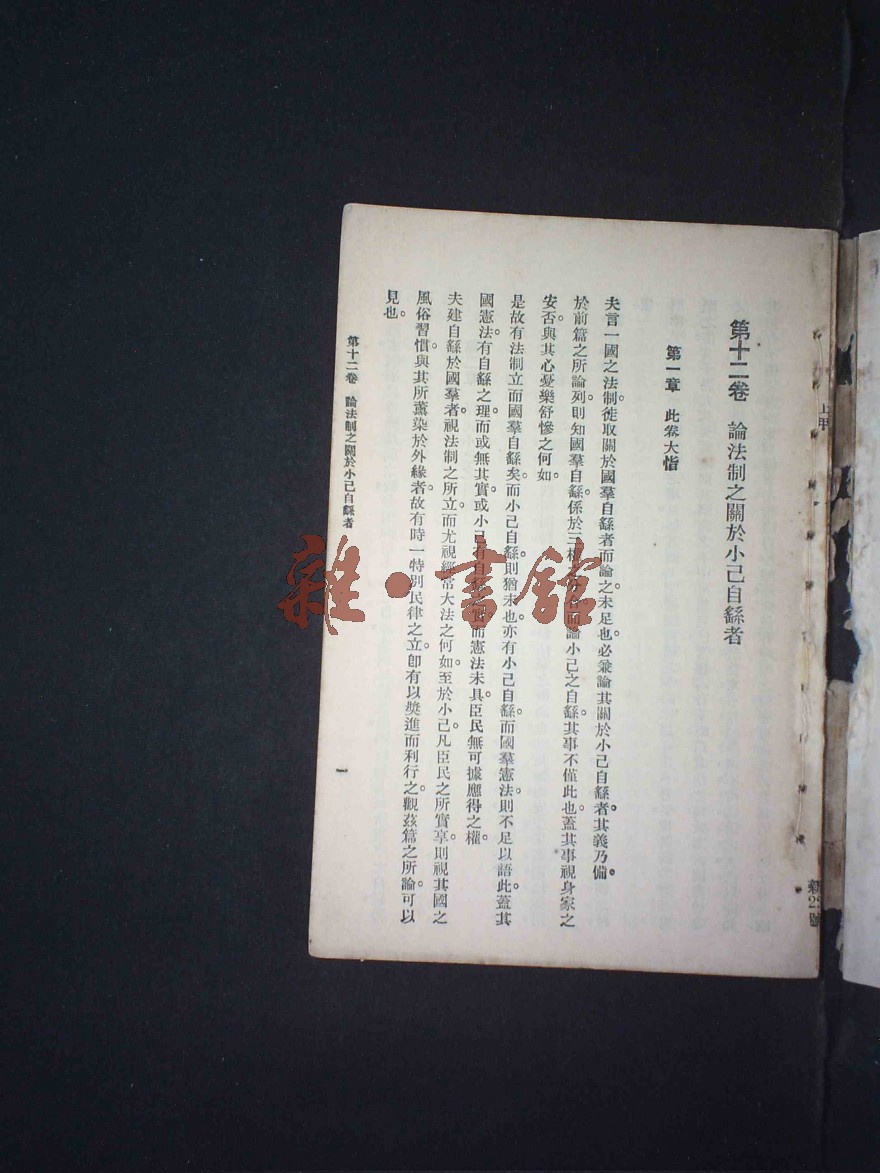 第十二卷 論法制之關於小己自繇者
第一章 此卷大悎
夫言一國之法制。徒取關於國羣自繇者而論之。未足也。必兼論其關於小己自繇者。其義乃備。
於前篇之所論列。則知國羣自繇。係於三權 而論小己之自繇。其事不僅此也。蓋其事視身家之
安否。與其心憂樂舒慘之何如。
是故有法制立而國羣自繇矣。而小己自繇則猶未也。亦有小己自繇。而國羣憲法。則不足以語此。蓋其
國憲法。有自繇之理。而或無其實。或小己有自繇 而憲法未具。臣民無可據應得之權。
夫建自繇於國羣者。視法制之所立。而尤視經常大法之何如。至於小己。凡臣民之所實享。則視其國之
風俗習慣。與其所薰染於外緣者。故有時一特別民律之立。卽有以奬進而利行之。觀茲篇之所論。可以
見也。
第十二卷 論法制之關於小己自繇者
一
上甲
雜·書館